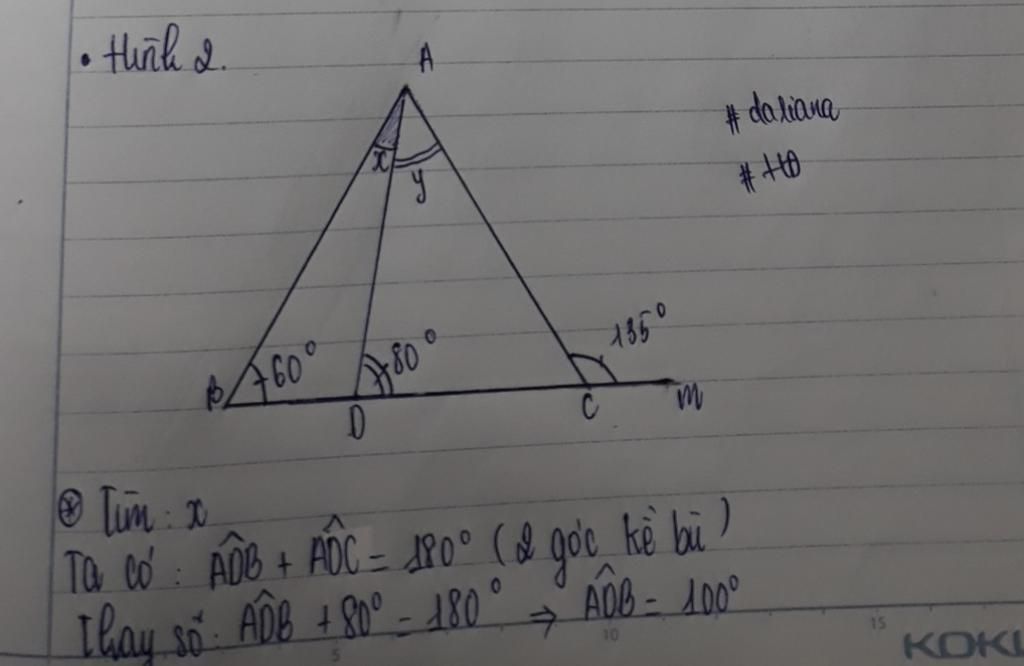 • Hình 2.
A
# daliana
# HĐ
x
y
60°
80°
135°
B
D
C
M
⊛ Tìm : x
Ta có : A^DB + A^DC = 180° (2 góc kề bù)
Thay số: A^DB + 80° = 180° ⇒ A^DB = 100°
5
10
15
KOKU